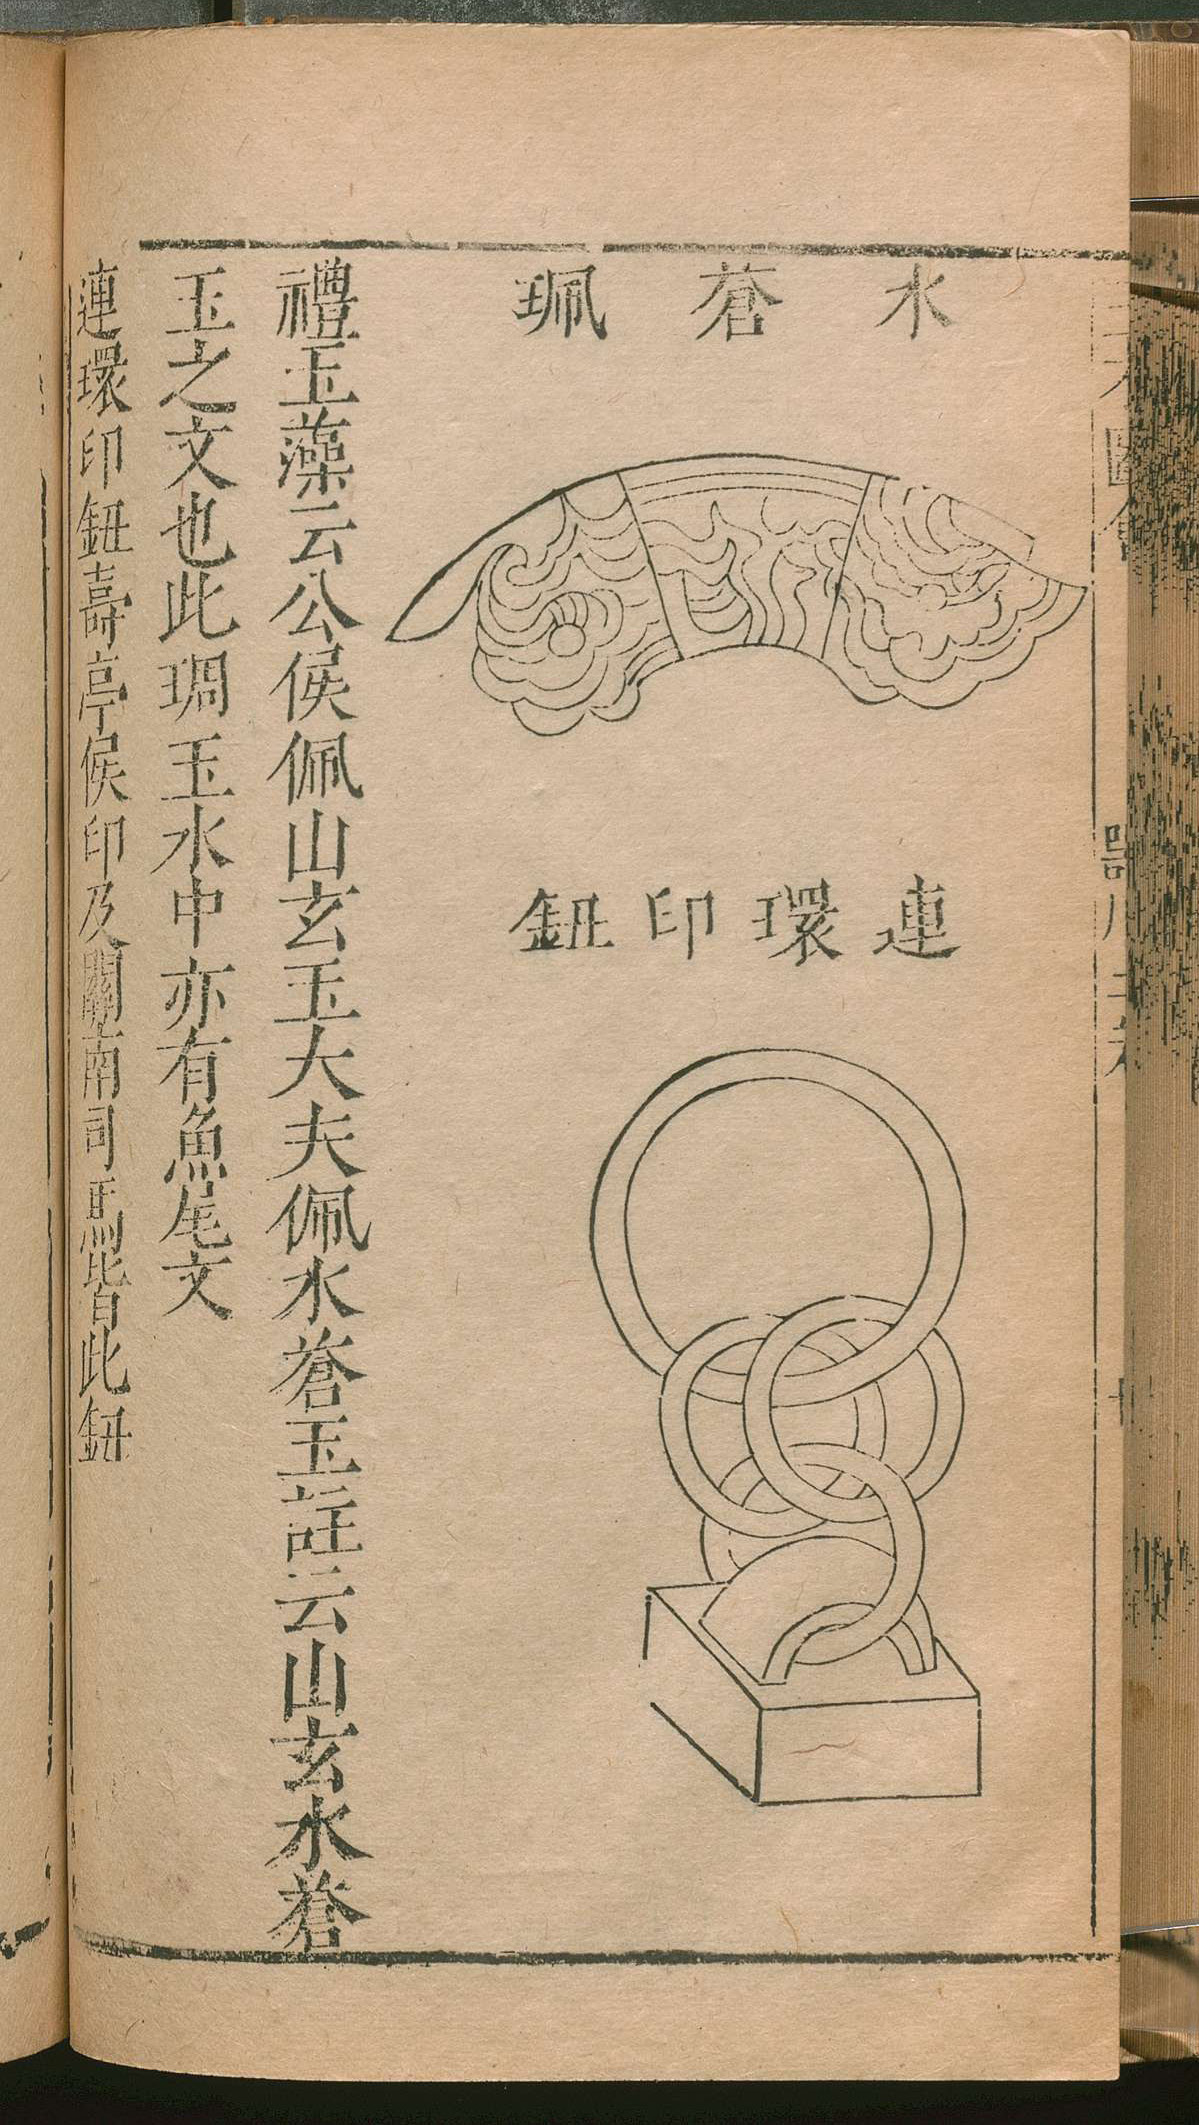 水蒼珮
連環印鈕
禮玉藻云公侯佩山玄玉大夫佩水蒼玉註云山玄水蒼
玉之文也此琱玉水中亦有魚尾文
連環印鈕壽亭侯印及關南司馬皆此鈕